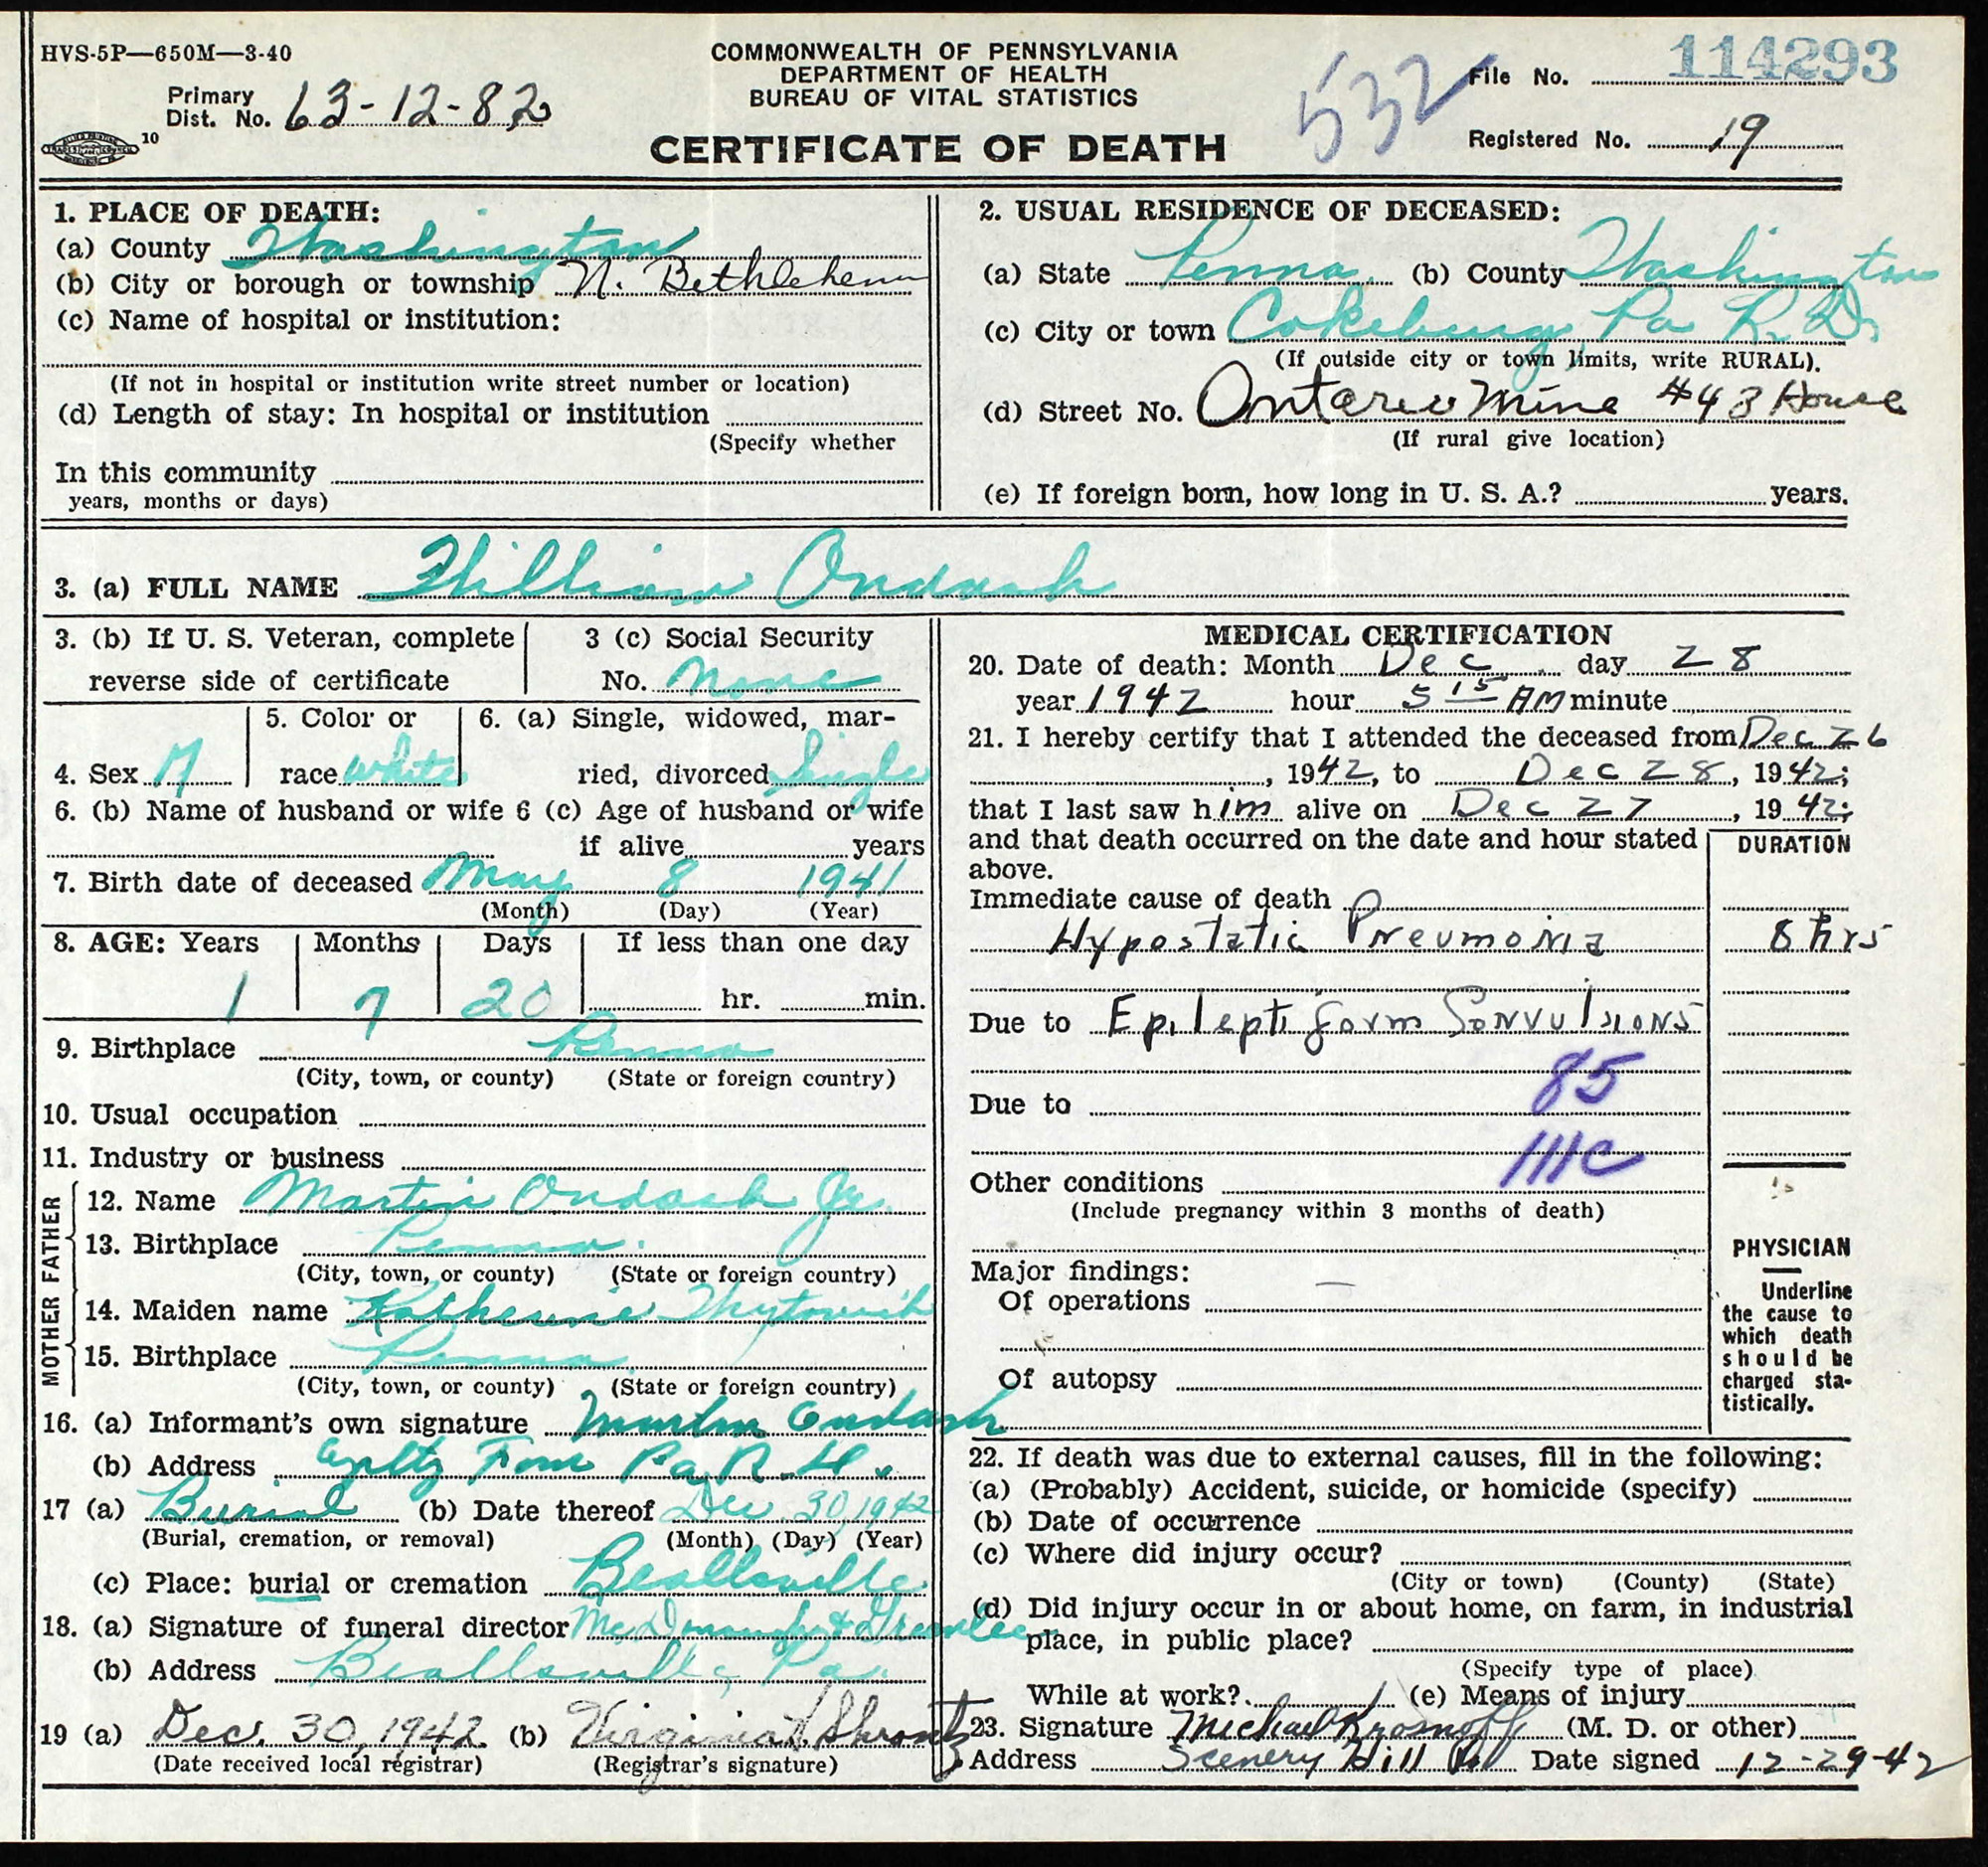 HVS-5P—650M—3-40
COMMONWEALTH OF PENNSYLVANIA
DEPARTMENT OF HEALTH
BUREAU OF VITAL STATISTICS
CERTIFICATE OF DEATH
Primary
Dist. No. 63-12-82
10
532
File No. 114293
Registered No. 19
1. PLACE OF DEATH:
(a) County Washington
(b) City or borough or township N. Bethlehem
(c) Name of hospital or institution:
(If not in hospital or institution write street number or location)
(d) Length of stay: In hospital or institution
(Specify whether
In this community
years, months or days)
2. USUAL RESIDENCE OF DECEASED:
(a) State Penna. (b) County Washington
(c) City or town Cokeburg, Pa R.D.
(If outside city or town limits, write RURAL).
(d) Street No. Ontario Mine #43 House
(If rural give location)
(e) If foreign born, how long in U. S. A.? years.
3. (a) FULL NAME William Ondash
3. (b) If U. S. Veteran, complete
reverse side of certificate
3 (c) Social Security
No. None
4. Sex M
5. Color or
race white
6. (a) Single, widowed, mar-
ried, divorced Single
6. (b) Name of husband or wife 6 (c) Age of husband or wife
if alive years
7. Birth date of deceased May 8 1941
(Month) (Day) (Year)
8. AGE: Years Months Days If less than one day
1 7 20 hr. min.
9. Birthplace Penna
(City, town, or county) (State or foreign country)
10. Usual occupation
11. Industry or business
FATHER
12. Name Martin Ondash Jr.
13. Birthplace Penna.
(City, town, or county) (State or foreign country)
MOTHER
14. Maiden name Katherine
15. Birthplace Penna
(City, town, or county) (State or foreign country)
16. (a) Informant's own signature Martin Ondash
(b) Address Pa R.
17 (a) Burial (b) Date thereof Dec 30, 1942
(Burial, cremation, or removal) (Month) (Day) (Year)
(c) Place: burial or cremation Beallsville
18. (a) Signature of funeral director & Greenlee
(b) Address Beallsville, Pa.
19 (a) Dec. 30, 1942 (b) Virginia Shrontz
(Date received local registrar) (Registrar's signature)
MEDICAL CERTIFICATION
20. Date of death: Month Dec day 28
year 1942 hour 5 15 AM minute
21. I hereby certify that I attended the deceased from Dec 26
, 1942, to Dec 28, 1942;
that I last saw him alive on Dec 27, 1942;
and that death occurred on the date and hour stated
above.
DURATION
Immediate cause of death
Hypostatic Pneumonia 8 hrs
Due to Epileptiform Convulsions
85
Due to
111c
Other conditions
(Include pregnancy within 3 months of death)
Major findings:
Of operations —
Of autopsy
PHYSICIAN
Underline
the cause to
which death
should be
charged sta-
tistically.
22. If death was due to external causes, fill in the following:
(a) (Probably) Accident, suicide, or homicide (specify)
(b) Date of occurrence
(c) Where did injury occur?
(City or town) (County) (State)
(d) Did injury occur in or about home, on farm, in industrial
place, in public place?
(Specify type of place)
While at work? (e) Means of injury
23. Signature Michael Krosnoff (M. D. or other)
Address Scenery Hill Pa Date signed 12-29-42